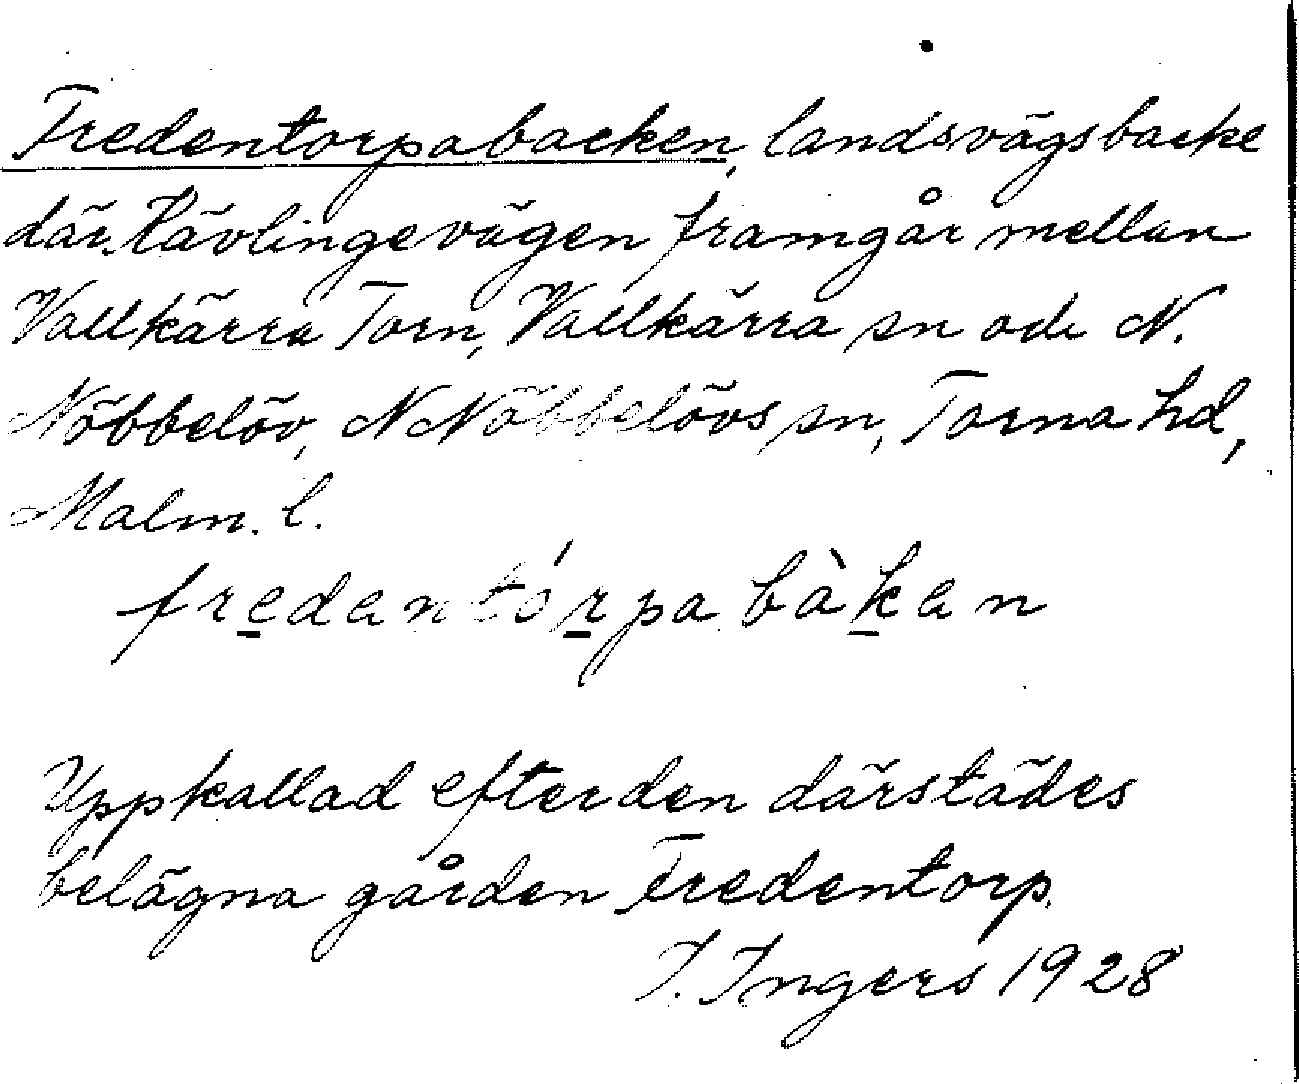 Fredentorpabacken, landsvägsbacke
där Kävlingevägen framgår mellan
Vallkärra Torn, Vallkärra sn och N.
Nöbbelöv, N Nöbbelövs sn, Torna hd,
Malm. l.
fredentórpa bàken
Uppkallad efter den därstädes
belägna gården Fredentorp.
I. Ingers 1928